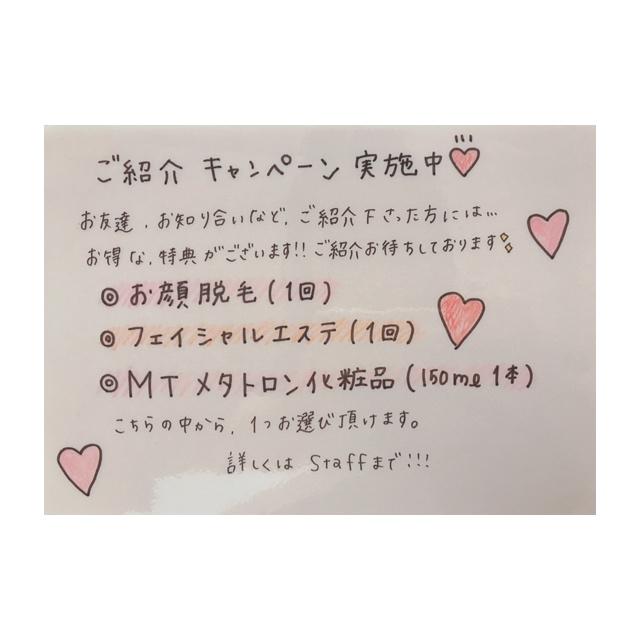 ご紹介 キャンペーン 実施中
お友達、お知り合いなど、ご紹介下さった方には…
お得な、特典がございます!! ご紹介お待ちしております
◎お顔脱毛(1回)
◎フェイシャルエステ(1回)
◎MTメタトロン化粧品(150ml 1本)
こちらの中から、1つお選び頂けます。
詳しくは Staffまで!!!